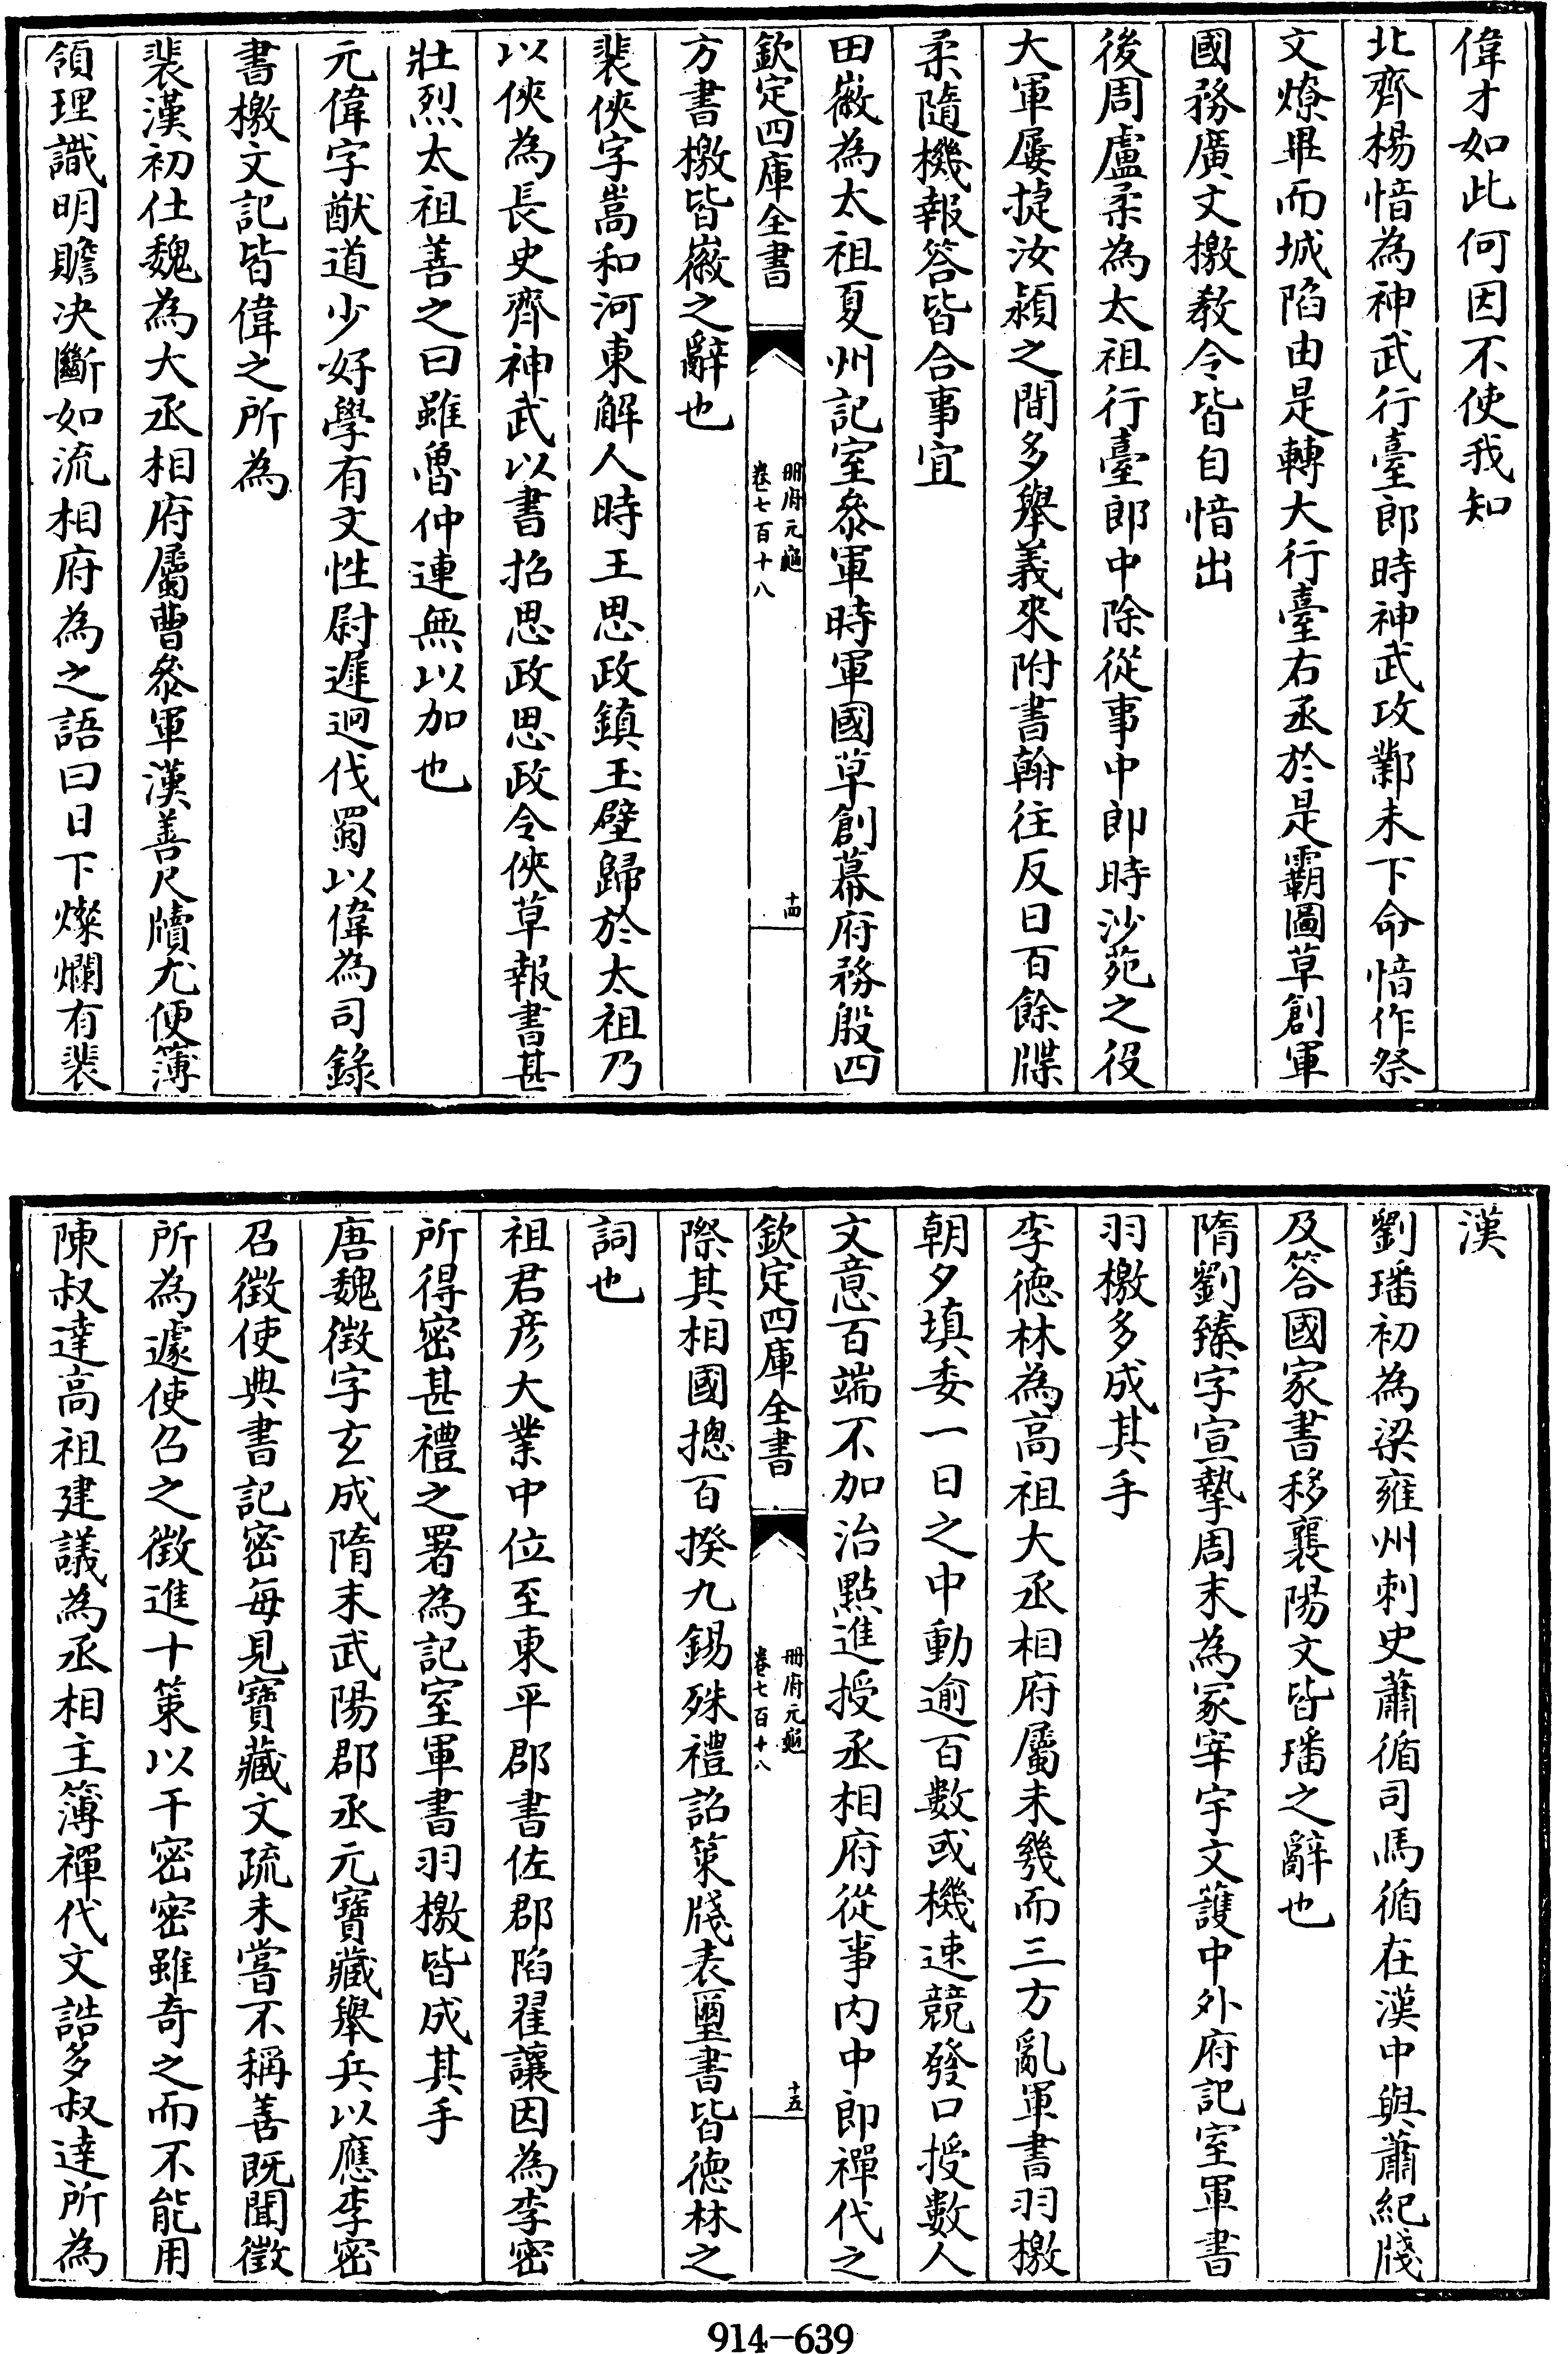 偉才如此何因不使我知
北齊楊愔為神武行臺郎時神武攻鄴未下命愔作祭
文燎畢而城陷由是轉大行臺右丞於是霸圖草創軍
國務廣文檄教令皆自愔出
後周盧柔為太祖行臺郎中除從事中郎時沙苑之役
大軍屢捷汝潁之間多舉義來附書翰往反日百餘牒
柔隨機報答皆合事宜
田徽為太祖夏州記室參軍時軍國草創幕府務殷四
欽定四庫全書
冊府元龜
卷七百十八
十四
方書檄皆徽之辭也
裴俠字嵩和河東解人時王思政鎮玉壁歸於太祖乃
以俠為長史齊神武以書招思政思政令俠草報書甚
壯烈太祖善之曰雖魯仲連無以加也
元偉字猷道少好學有文性尉遲迥伐蜀以偉為司錄
書檄文記皆偉之所為
裴漢初仕魏為大丞相府屬曹參軍漢善尺牘尤便簿
領理識明贍決斷如流相府為之語曰日下燦爛有裴
漢
劉璠初為梁雍州刺史蕭循司馬循在漢中與蕭紀牋
及答國家書移襄陽文皆璠之辭也
隋劉臻字宣摯周末為冢宰宇文護中外府記室軍書
羽檄多成其手
李德林為高祖大丞相府屬未幾而三方亂軍書羽檄
朝夕填委一日之中動逾百數或機速競發口授數人
文意百端不加治點進授丞相府從事內中郎禪代之
欽定四庫全書
冊府元龜
卷七百十八
十五
際其相國摠百揆九錫殊禮詔策牋表璽書皆德林之
詞也
祖君彦大業中位至東平郡書佐郡陷翟讓因為李密
所得密甚禮之署為記室軍書羽檄皆成其手
唐魏徵字玄成隋末武陽郡丞元寶藏舉兵以應李密
召徵使典書記密每見寶藏文疏未嘗不稱善既聞徵
所為遽使召之徵進十策以干密密雖奇之而不能用
陳叔達高祖建議為丞相主簿禪代文誥多叔達所為
914-639